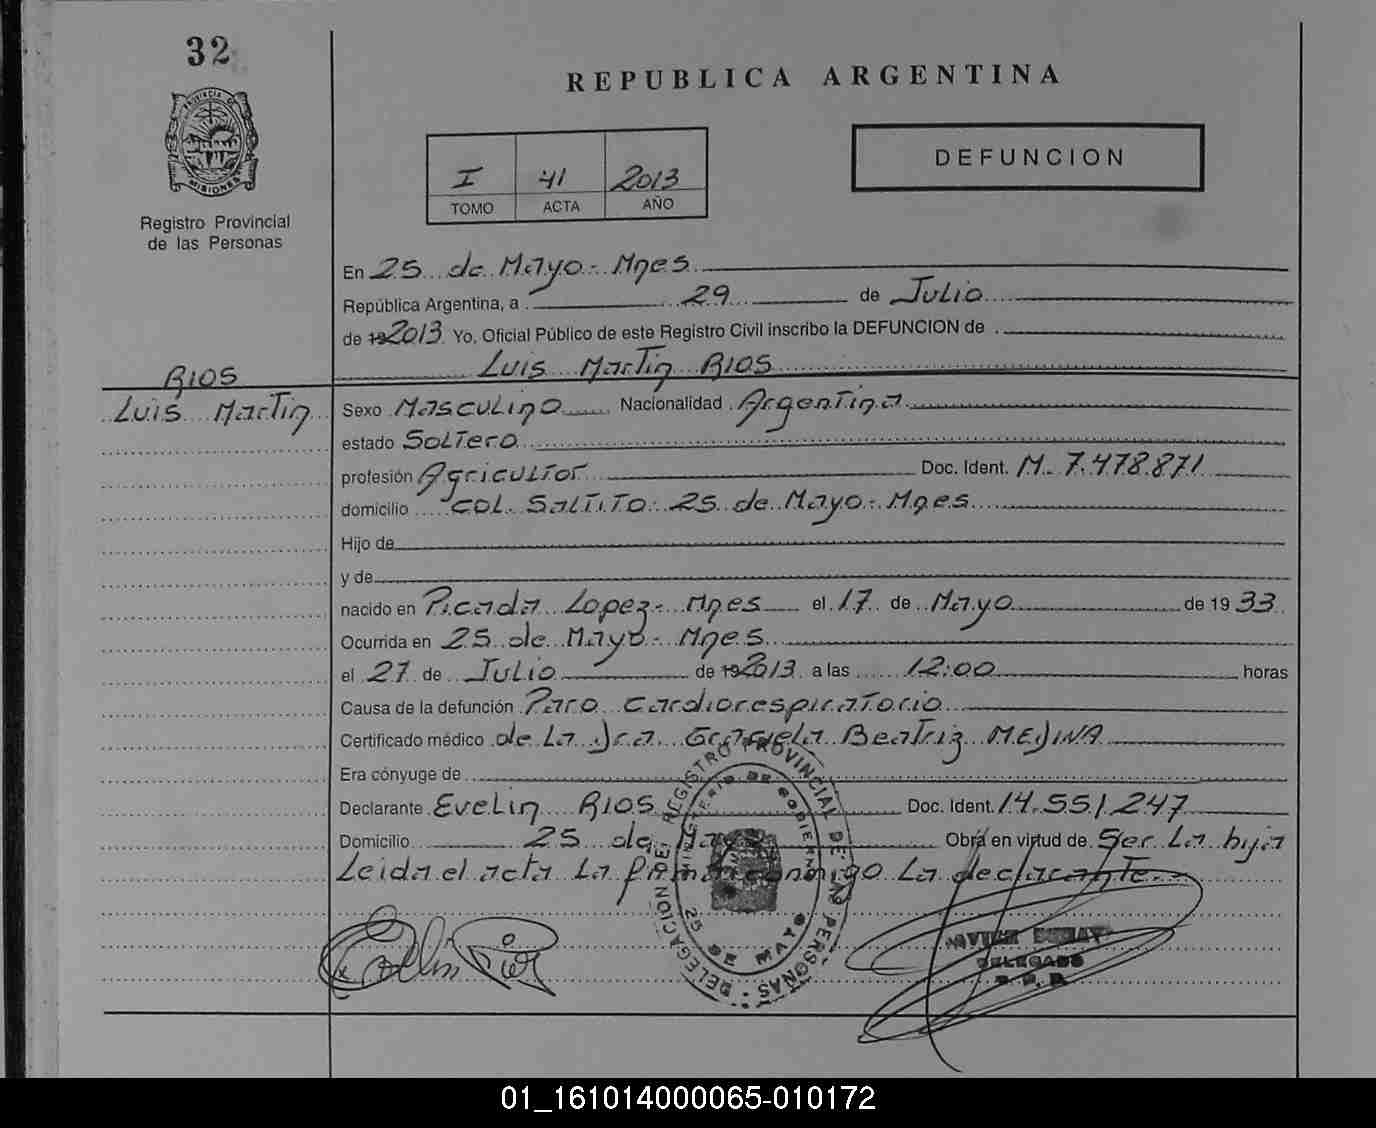 32
PROVINCIA DE
MISIONES
Registro Provincial
de las Personas
REPUBLICA ARGENTINA
I 41 2013
TOMO ACTA AÑO
DEFUNCION
En 25 de Mayo - Mnes
República Argentina, a 29 de Julio
de 19 2013 Yo, Oficial Público de este Registro Civil inscribo la DEFUNCION de
Luis Martin RIOS
RIOS
Luis Martin
Sexo Masculino Nacionalidad Argentina
estado Soltero
profesión Agricultor Doc. Ident. M. 7.478.871
domicilio COL. SALTITO - 25 de Mayo - Mnes
Hijo de
y de
nacido en Picada Lopez - Mnes el 17 de Mayo de 19 33
Ocurrida en 25 de Mayo - Mnes
el 27 de Julio de 19 2013 a las 12:00 horas
Causa de la defunción Paro cardiorespiratorio
Certificado médico de La Dra. Graciela Beatriz MEDINA
Era cónyuge de
Declarante Evelin RIOS Doc. Ident. 14.551.247
Domicilio 25 de Mayo Obra en virtud de Ser La hija
Leida el acta La firma conmigo La declarante
DELEGACION DEL REGISTRO PROVINCIAL DE LAS PERSONAS
MINISTERIO DE GOBIERNO
25 DE MAYO
DELEGADO
01_161014000065-010172